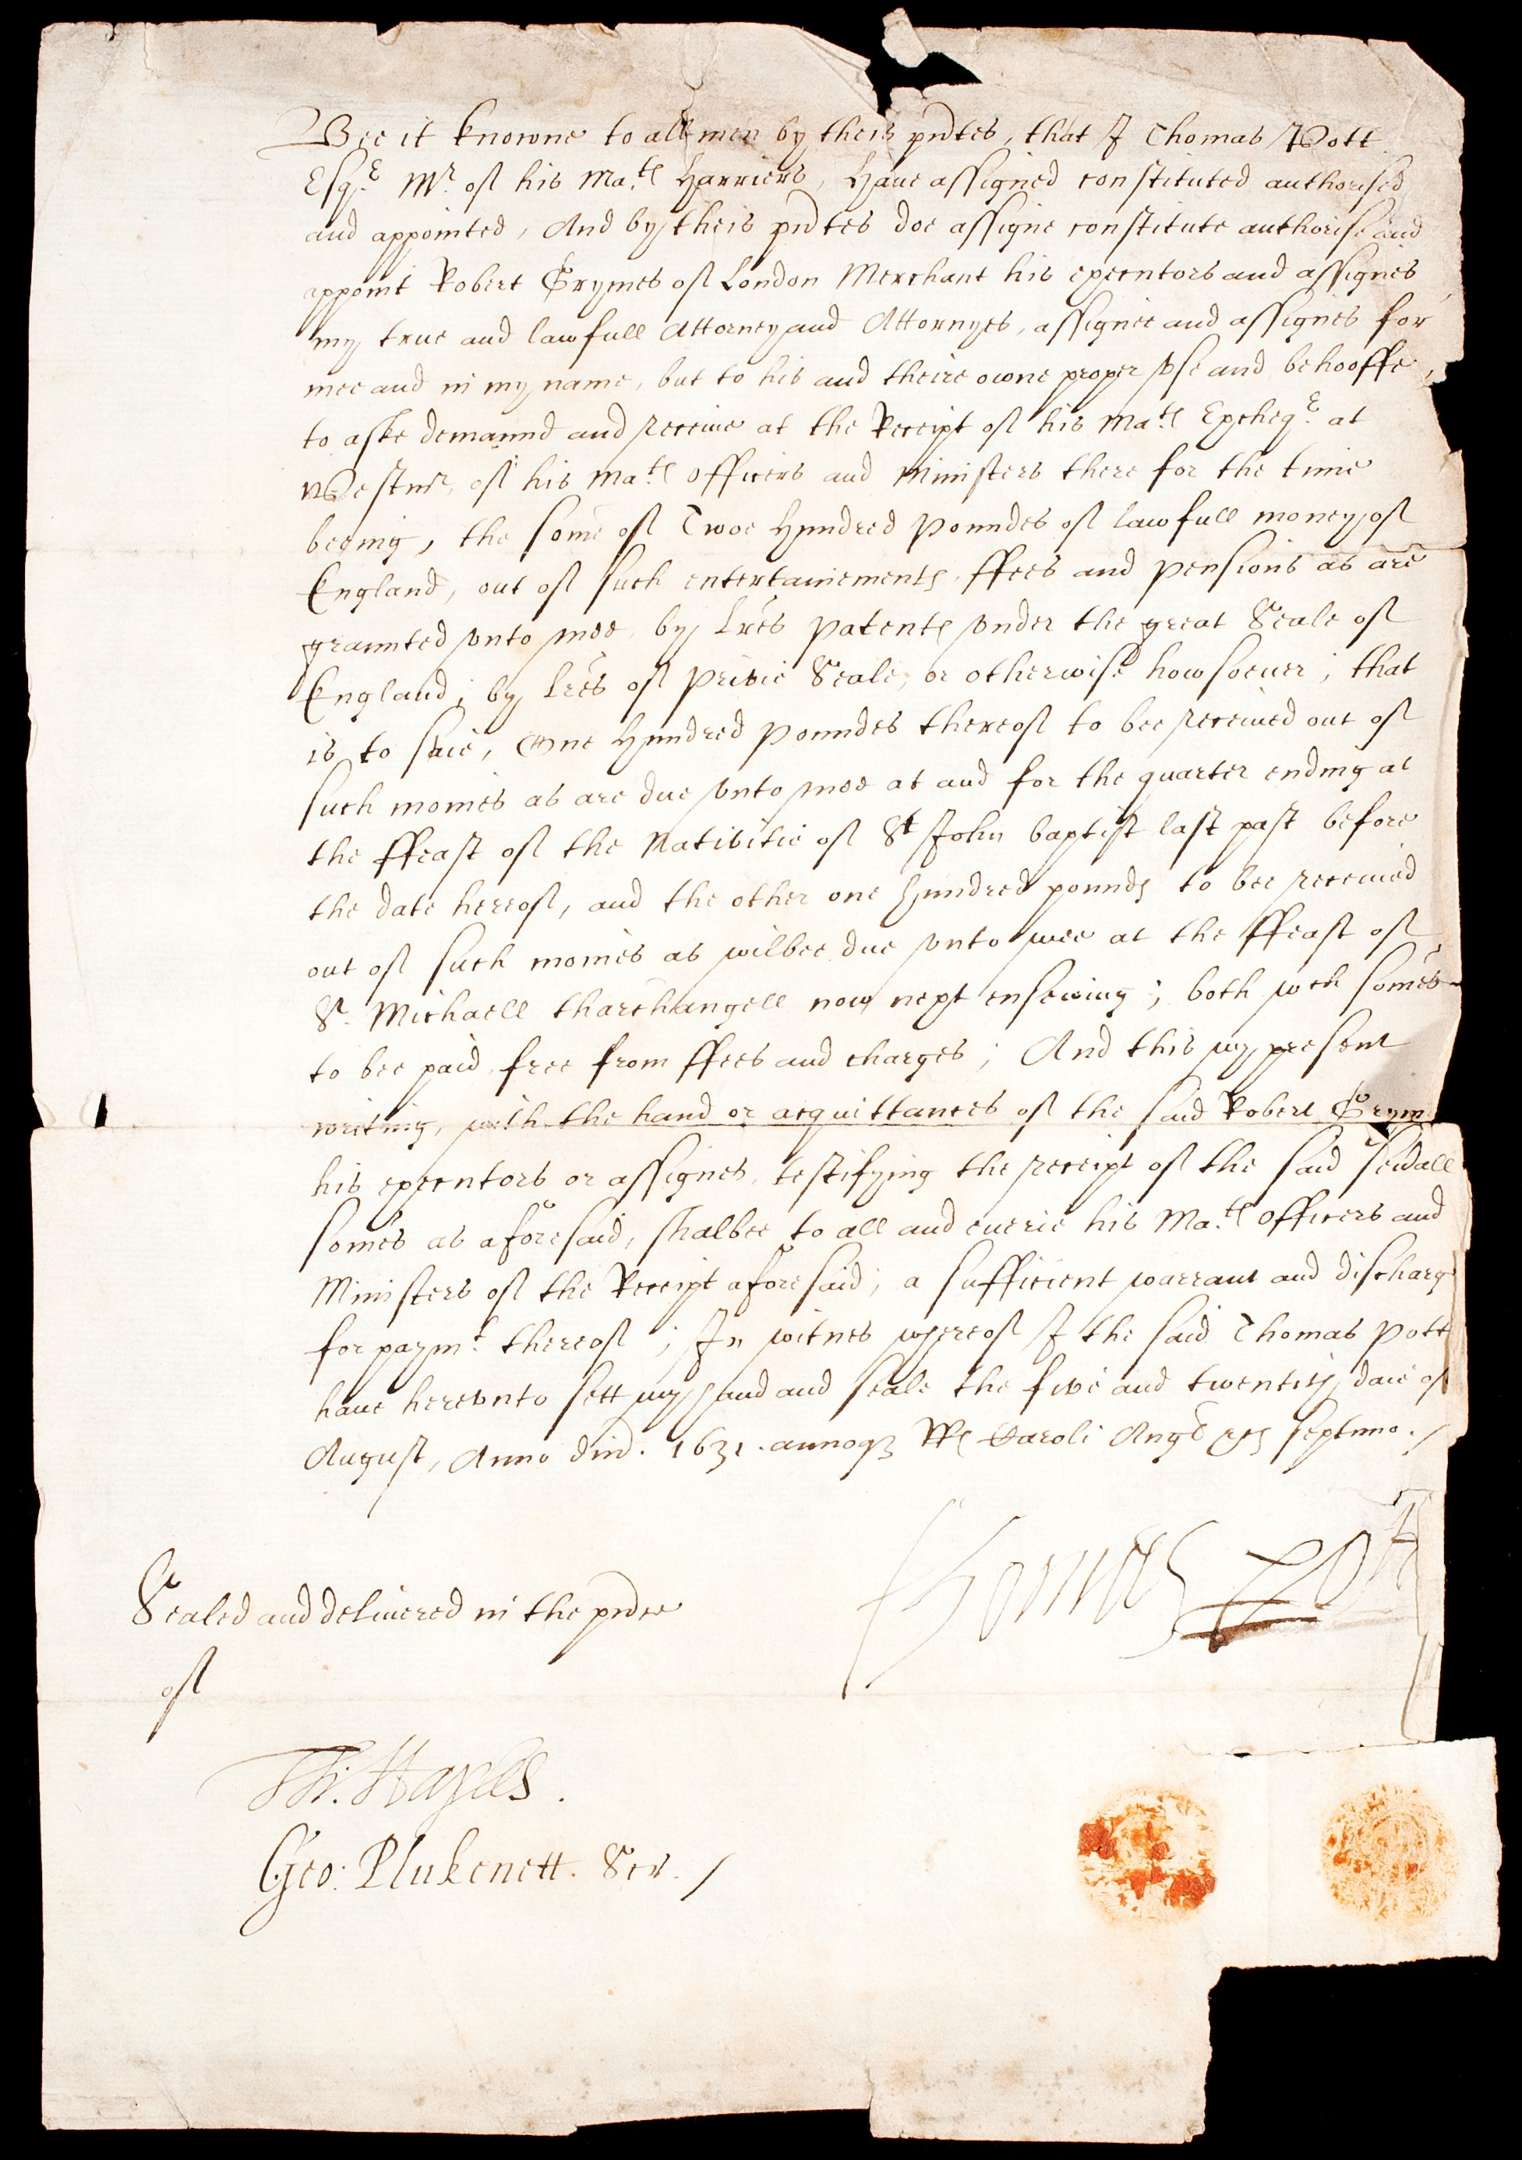 Bee it knowne to all men by theis pñtes, that I Thomas Pott
Esqr. Mr. of his Matꝭ Harriers, Have assigned constituted authorised
and appointed, And by theis pñtes doe assigne constitute authorise and
appoint Robert Grymes of London Merchant his executors and assignes
my true and lawfull Attorney and Attornyes, assignee and assignes for
mee and in my name, but to his and theire owne proper vse and behooffe,
to aske demaund and receive at the Receipt of his Matꝭ Excheqr. at
Westmr, of his Matꝭ Officers and Ministers there for the time
beeing, the some of Twoe Hundred Poundes of lawfull money of
England, out of such entertainementꝭ, ffees and Pensions as are
graunted vnto mee by Lr̃es Patentꝭ vnder the great Seale of
England, by Lr̃es of Privie Seale, or otherwise howsoeuer; that
is to saie, One Hundred Poundes thereof to bee received out of
such monies as are due vnto mee at and for the quarter ending at
the ffeast of the Nativitie of St John Baptist last past before
the date hereof, and the other one hundred poundꝭ to bee received
out of such monies as wilbee due vnto mee at the ffeast of
St. Michaell tharchangell now next ensewing; both wch somẽs
to bee paid free from ffees and charges; And this my present
writing, with the hand or acquittances of the said Robert Grym
his executors or assignes, testifying the receipt of the said seu̾all
somẽs as aforesaid, shalbee to all and euerie his Matꝭ Officers and
Ministers of the Receipt aforesaid, a sufficient warrant and discharge
for paymt. thereof; In witnes whereof I the said Thomas Pott
have herevnto sett my hand and seale the five and twentith daie of
August, Anno dñi. 1631. annoqꝫ Rꝭ Caroli Angl̃ &cꝭ septimo./
Thomas Pott
Sealed and delivered in the pñce
of
Th: Hayles.
Geo: Plukenett. Scr./